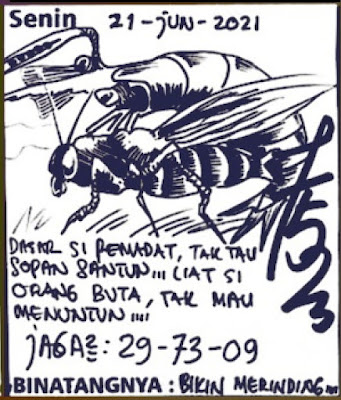 Senin 21-JUN-2021
DASAR SI PEMADAT, TAK TAU
SOPAN SANTUN,,, LIAT SI
ORANG BUTA, TAK MAU
MENUNTUN,,,,
JAGA2: 29-73-09
BINATANGNYA : BIKIN MERINDING,,,